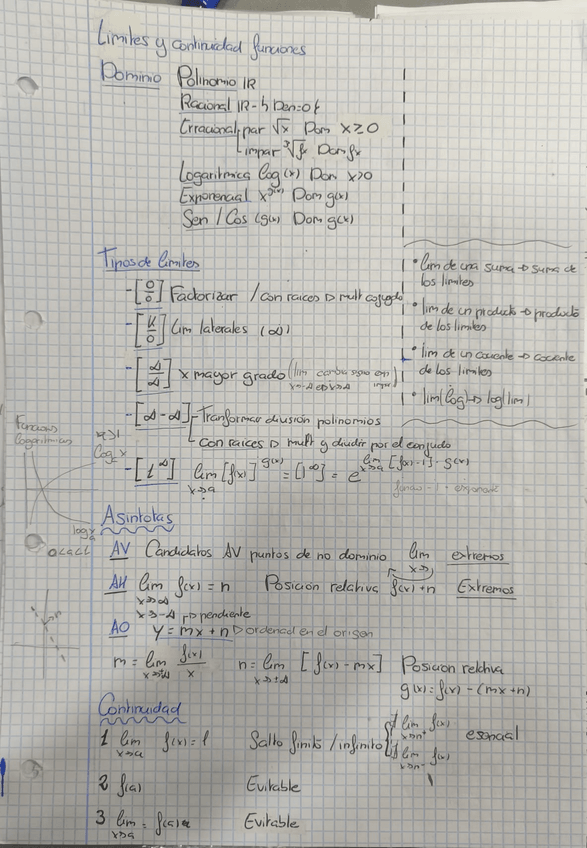 Limites y continuidad funciones
Dominio Polinomio IR
Racional IR - { Den=0 }
Irracional par √x Dom x≥0
impar ³√fx Dom fx
Logaritmica log(x) Dom x>0
Exponencial x^g(x) Dom g(x)
Sen / Cos (g(x) Dom g(x)
Tipos de limites
- [0/0] Factorizar / con raices → mult conjugado
- [K/0] Lim laterales (∞)
- [∞/∞] x mayor grado (lim cambia signo en x→-∞ impar)
- [∞-∞] Transformar division polinomios
con raices → mult y dividir por el conjudo
- [1^∞] lim x→a [f(x)]^g(x) = [1^∞] = e^lim x→a [f(x)-1]·g(x)
· lim de una suma → suma de
los limites
· lim de un producto → producto
de los limites
· lim de un cociente → cociente
de los limites
· lim(log) → log(lim)
Funciones
Logaritmicas
a>1
log x
log x
0<a<1
Asintotas
AV Candidatos AV puntos de no dominio lim x→ extremos
AH lim x→∞ f(x) = n Posición relativa f(x)-n Extremos
x→-∞ → pendiente
AO y = mx + n → ordenada en el origen
m = lim x→±∞ f(x)/x n = lim x→±∞ [f(x) - mx] Posicion relativa
g(x) = f(x) - (mx+n)
Continuidad
1 lim x→a f(x) = l Salto finito / infinito ∄ lim x→n⁺ f(x) esencial
∄ lim x→n⁻ f(x)
2 f(a) Evitable
3 lim x→a = f(a) Evitable